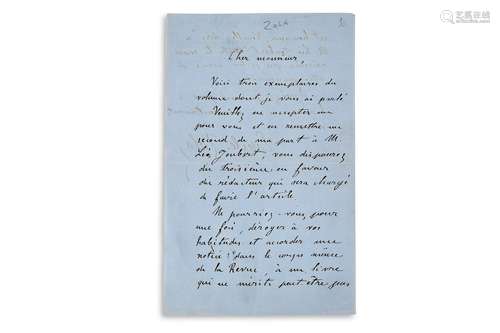 ZOLA
Cher monsieur,
Voici trois exemplaires du
volume dont je vous ai parlé
Veuillez en accepter un
pour vous et en remettre un
second de ma part à M.
Léo Joubert; vous disposerez
du troisième en faveur
du rédacteur qui sera chargé
de faire l'article.
Ne pourriez-vous, pour
une fois, déroger à vos
habitudes et accorder une
notice dans le corps même
de la Revue, à un livre
qui ne mérite peut-être pas